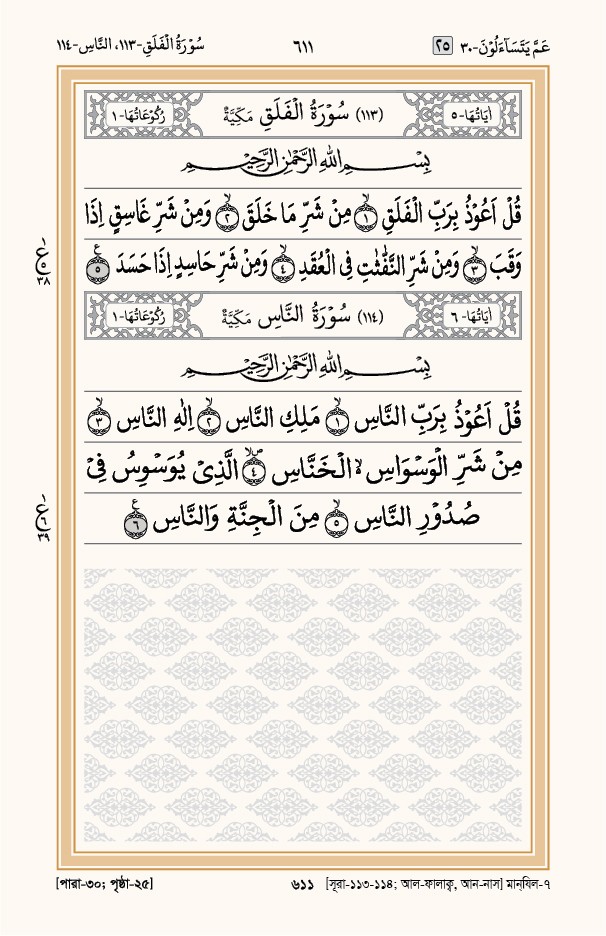 عَمَّ يَتَسَآءَلُوْنَ-٣٠ ٢٥ ٦١١ سُوْرَةُ الْفَلَقِ-١١٣، النَّاسِ-١١٤
اٰيَاتُهَا-٥ (١١٣) سُوْرَةُ الْفَلَقِ مَكِّيَّةٌ رُكُوْعَاتُهَا-١
بِسْمِ اللهِ الرَّحْمٰنِ الرَّحِيْمِ
قُلْ اَعُوْذُ بِرَبِّ الْفَلَقِ ۙ‏﴿١﴾ مِنْ شَرِّ مَا خَلَقَ ۙ‏﴿٢﴾ وَمِنْ شَرِّ غَاسِقٍ اِذَا
وَقَبَ ۙ‏﴿٣﴾ وَمِنْ شَرِّ النَّفّٰثٰتِ فِى الْعُقَدِ ۙ‏﴿٤﴾ وَمِنْ شَرِّ حَاسِدٍ اِذَا حَسَدَ ﴿٥﴾
ع ٥ ٣٨
اٰيَاتُهَا-٦ (١١٤) سُوْرَةُ النَّاسِ مَكِّيَّةٌ رُكُوْعَاتُهَا-١
بِسْمِ اللهِ الرَّحْمٰنِ الرَّحِيْمِ
قُلْ اَعُوْذُ بِرَبِّ النَّاسِ ۙ‏﴿١﴾ مَلِكِ النَّاسِ ۙ‏﴿٢﴾ اِلٰهِ النَّاسِ ۙ‏﴿٣﴾
مِنْ شَرِّ الْوَسْوَاسِ ۙ الْخَنَّاسِ ۙ‏﴿٤﴾ الَّذِىْ يُوَسْوِسُ فِىْ
صُدُوْرِ النَّاسِ ۙ‏﴿٥﴾ مِنَ الْجِنَّةِ وَالنَّاسِ ﴿٦﴾
ع ٦ ٣٩
[পারা-৩০; পৃষ্ঠা-২৫] ৬১১ [সূরা-১১৩-১১৪; আল-ফালাক্ব, আন-নাস] মান্‌যিল-৭